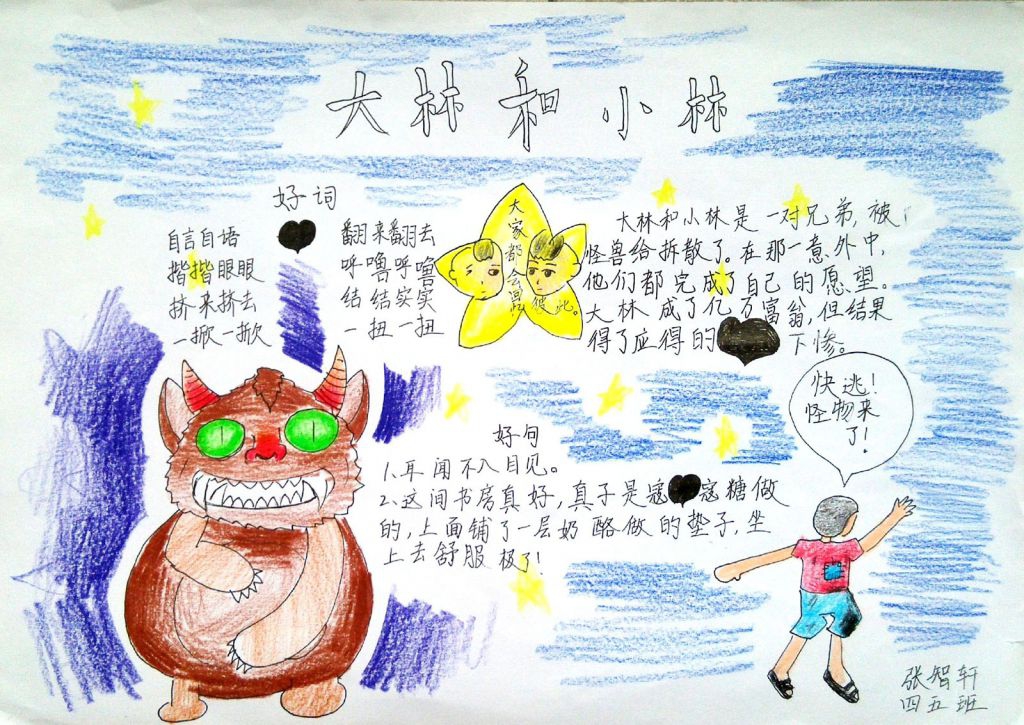 大林和小林
好词
自言自语
揩揩眼眼
挤来挤去
一掀一掀
翻来翻去
呼噜呼噜
结结实实
一扭一扭
大家都会
彼此。
大林和小林是一对兄弟，被
怪兽给拆散了。在那一意外中，
他们都完成了自己的愿望。
大林成了亿万富翁，但结果
得了应得的下惨。
快逃！
怪物来
了！
好句
1.耳闻不入目见。
2.这间书房真好，真子是寇寇糖做
的，上面铺了一层奶酪做的垫子，坐
上去舒服极了！
张智轩
四五班